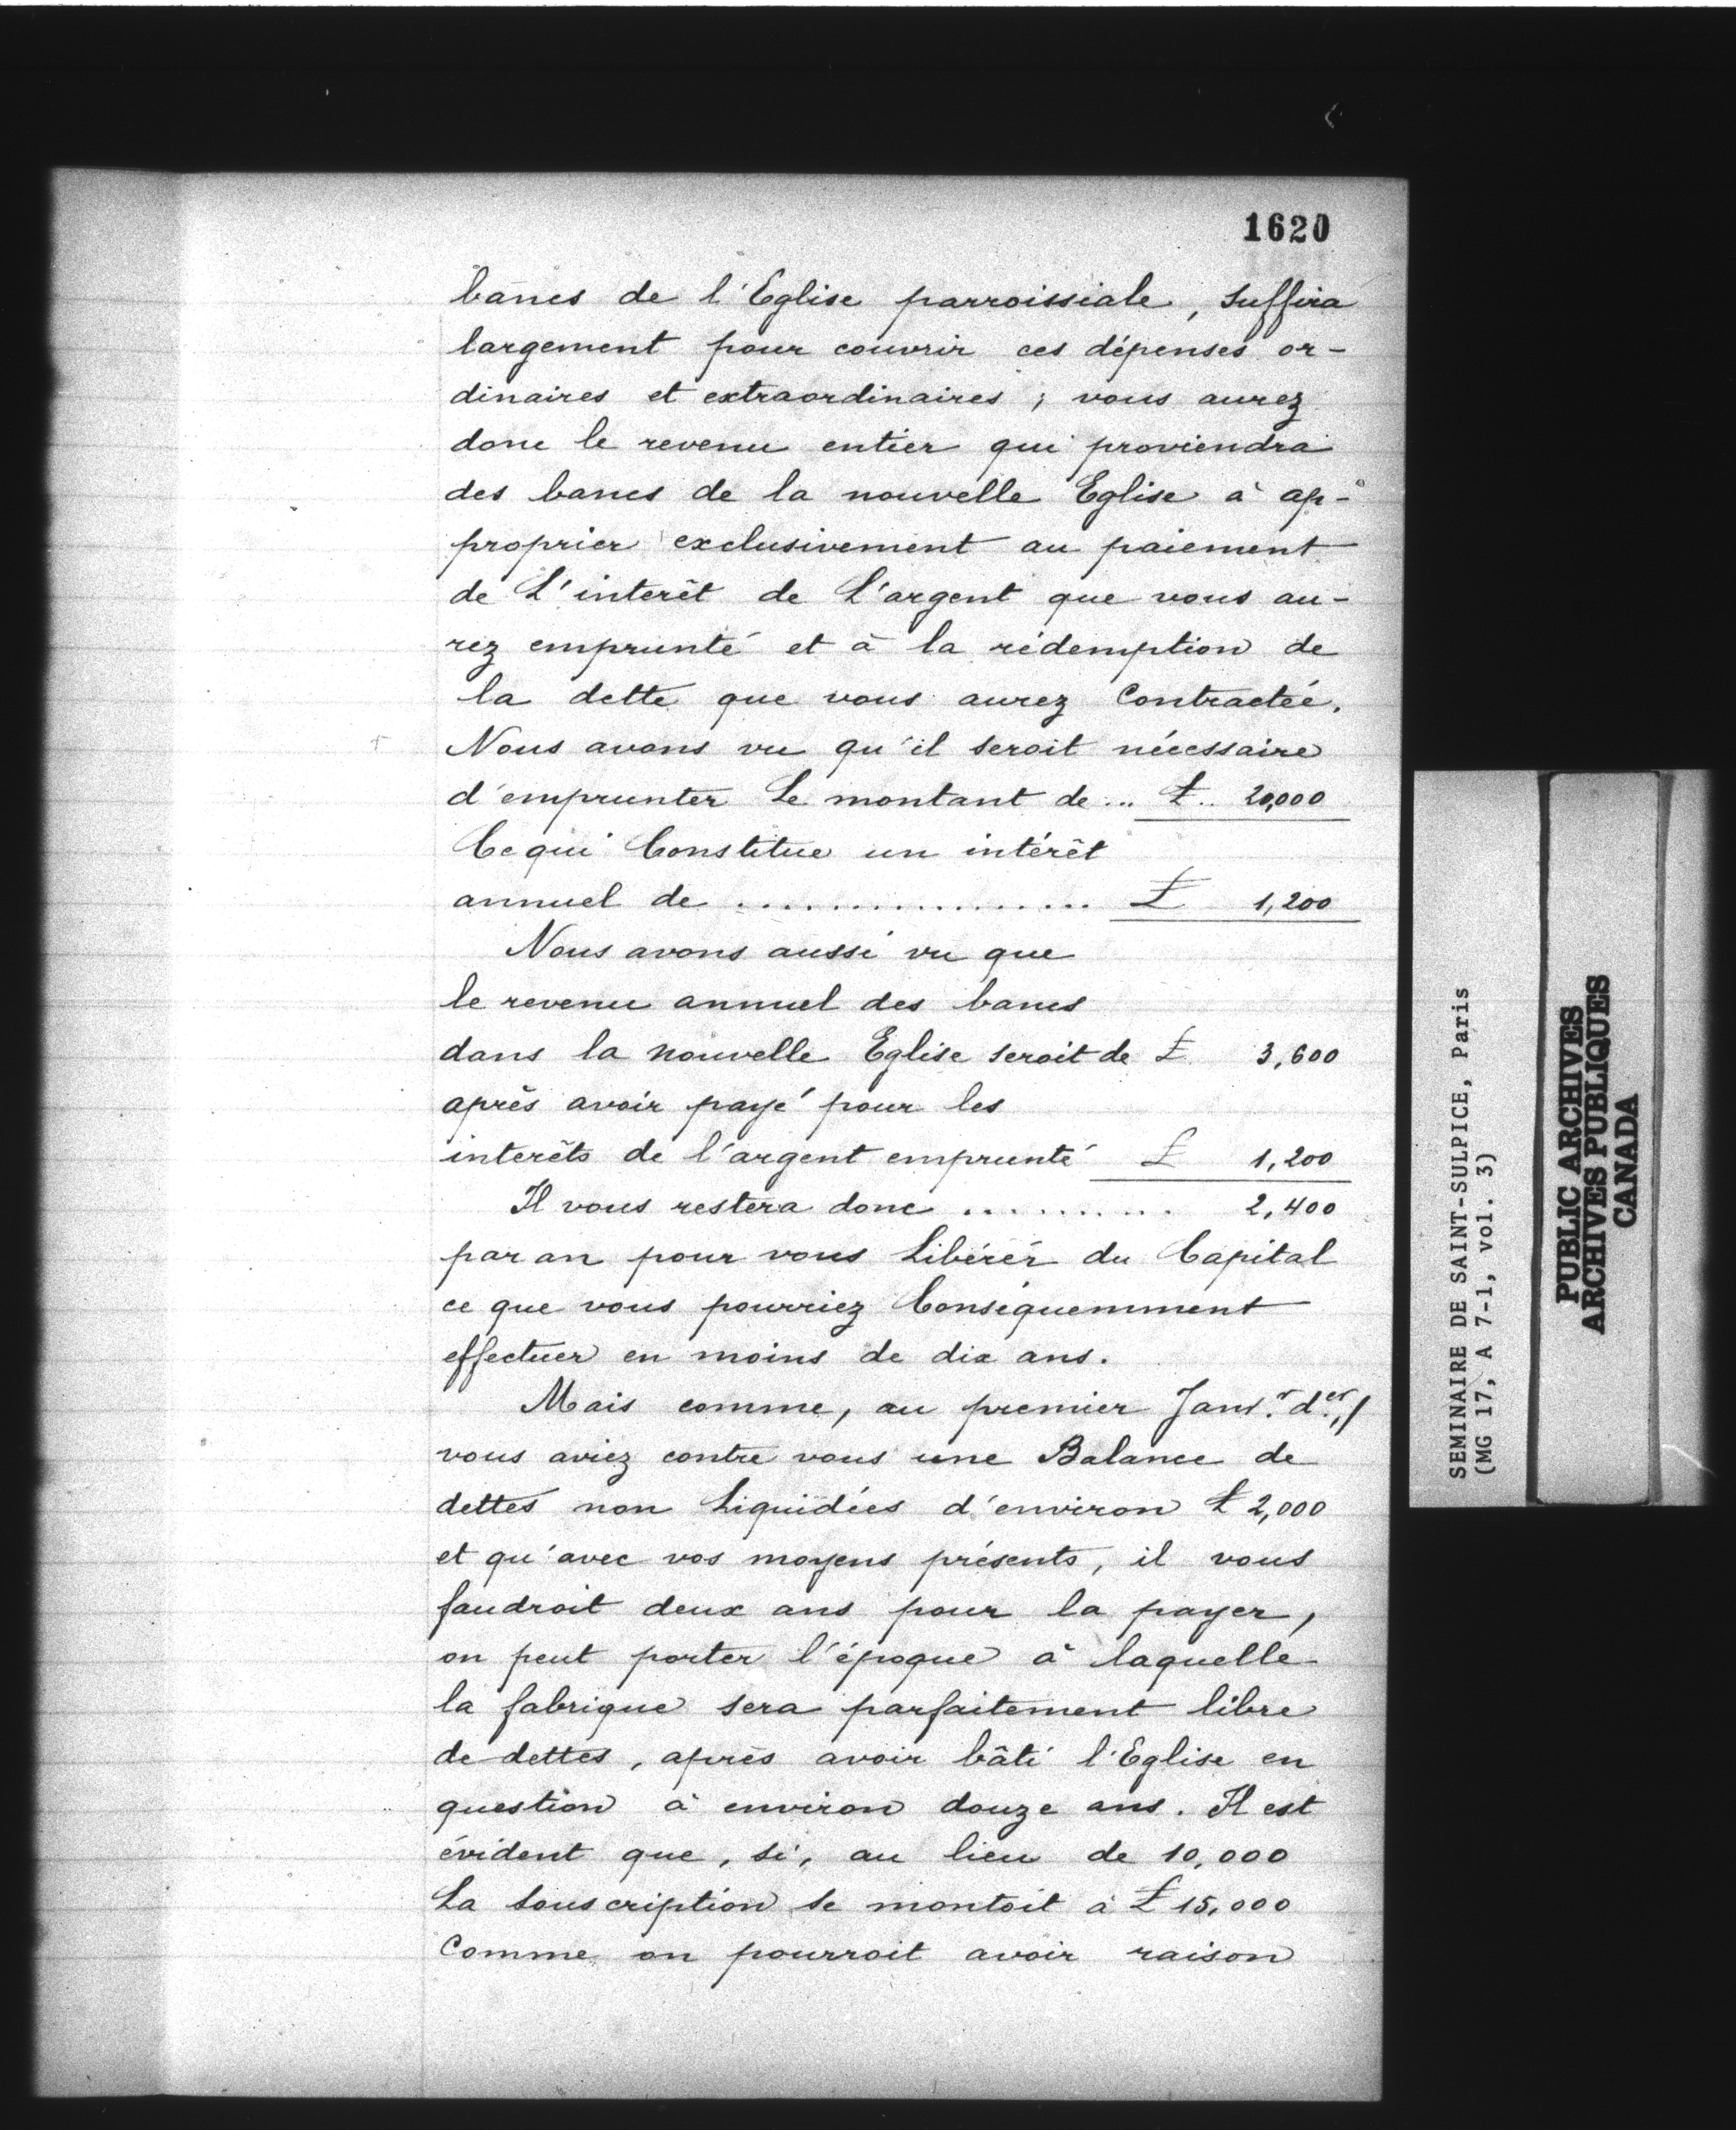 1620
bancs de l'Eglise parroissiale, suffira
largement pour couvrir ces dépenses or-
dinaires et extraordinaires ; vous aurez
donc le revenu entier qui proviendra
des bancs de la nouvelle Eglise à ap-
proprier exclusivement au paiement
de L'interêt de L'argent que vous au-
rez emprunté et à la rédemption de
la dette que vous aurez Contractée.
Nous avons vu qu'il seroit nécessaire
d'emprunter Le montant de... £.. 20,000
Ce qui Constitue un intérêt
annuel de ................. £ 1,200
Nous avons aussi vu que
le revenu annuel des bancs
dans la nouvelle Eglise seroit de £ 3,600
après avoir payé pour les
interêts de l'argent emprunté £ 1,200
Il vous restera donc .......... 2,400
par an pour vous Libérér du Capital
ce que vous pourriez Conséquemment
effectuer en moins de dix ans.
Mais comme, au premier Janv.r d.er,/
vous aviez contre vous une Balance de
dettes non Liquidées d'environ £ 2,000
et qu'avec vos moyens présents, il vous
faudroit deux ans pour la payer,
on peut porter l'époque à laquelle
la fabrique sera parfaitement libre
de dettes, après avoir bâti l'Eglise en
question à environ douze ans. Il est
évident que, si, au lieu de 10,000
La Souscription se montoit à £ 15,000
Comme on pourroit avoir raison
SEMINAIRE DE SAINT-SULPICE, Paris
(MG 17, A 7-1, vol. 3)
PUBLIC ARCHIVES
ARCHIVES PUBLIQUES
CANADA